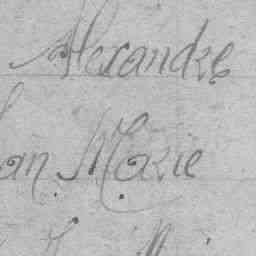 Alexandre
an Marie